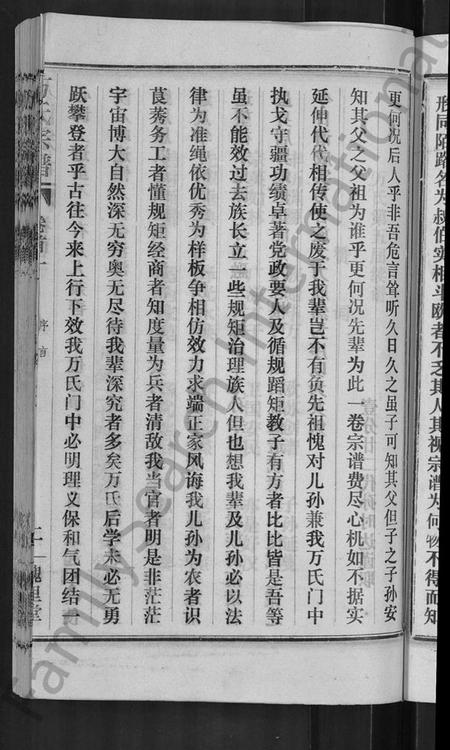 形同陌路名为叔伯实相斗殴者不乏其人其视宗谱为何物不得而知
更何况后人乎非吾危言耸听久日久之虽子可知其父但子之子孙安
知其父之父祖为谁乎更何况先辈为此一卷宗谱费尽心机如不据实
延伸代代相传使之废于我辈岂不有负先祖愧对儿孙兼我万氏门中
执戈守疆功绩卓著党政要人及循规蹈矩教子有方者比比皆是吾等
虽不能效过去族长立一些规矩治理族人但也想我辈及儿孙必以法
律为准绳依优秀为样板争相仿效力求端正家风诲我儿孙为农者识
莨莠务工者懂规矩经商者知度量为兵者清敌我当官者明是非茫茫
宇宙博大自然深无穷奥无尽待我辈深究者多矣万氏后学未必无勇
跃攀登者乎古往今来上行下效我万氏门中必明理义保和气团结一
万氏宗谱
卷首一
序言
槐旦堂
FamilySearch International